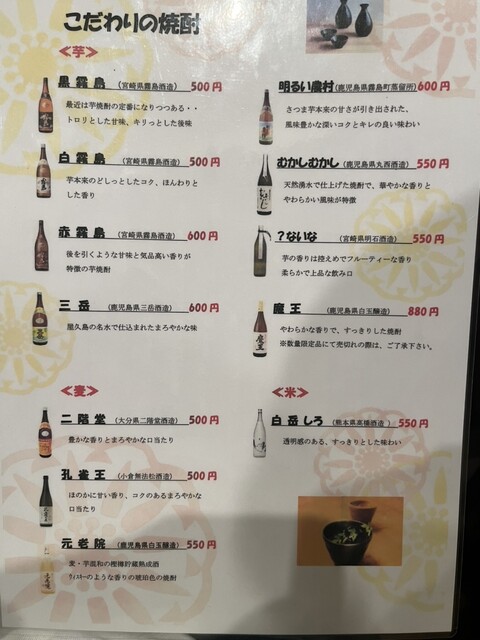 こだわりの焼酎
≪芋≫
黒霧島 （宮崎県霧島酒造） 500円
最近は芋焼酎の定番になりつつある・・
トロリとした甘味、キリっとした後味
白霧島 （宮崎県霧島酒造） 500円
芋本来のどしっとしたコク、ほんわりと
した香り
赤霧島 （宮崎県霧島酒造） 600円
後を引くような甘味と気品高い香りが
特徴の芋焼酎
三岳 （鹿児島県三岳酒造） 600円
屋久島の名水で仕込まれたまろやかな味
明るい農村 （鹿児島県霧島町蒸留所） 600円
さつま芋本来の甘さが引き出された、
風味豊かな深いコクとキレの良い味わい
むかしむかし （鹿児島県丸西酒造） 550円
天然湧水で仕上げた焼酎で、華やかな香りと
やわらかい風味が特徴
？ないな （宮崎県明石酒造） 550円
芋の香りは控えめでフルーティーな香り
柔らかで上品な飲み口
魔王 （鹿児島県白玉醸造） 880円
やわらかな香りで、すっきりした焼酎
※数量限定品にて売切れの際は、ご了承下さい。
≪麦≫
二階堂 （大分県二階堂酒造） 500円
豊かな香りとまろやかな口当たり
孔雀王 （小倉無法松酒造） 500円
ほのかに甘い香り、コクのあるまろやかな
口当たり
元老院 （鹿児島県白玉醸造） 550円
麦・芋混和の樫樽貯蔵熟成酒
ウィスキーのような香りの琥珀色の焼酎
≪米≫
白岳しろ （熊本県高橋酒造 ） 550円
透明感のある、すっきりとした味わい